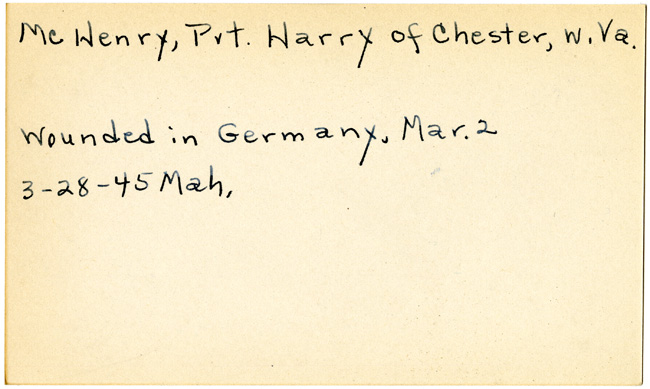 McHenry, Pvt. Harry of Chester, W.Va.
Wounded in Germany, Mar. 2
3-28-45 Mah,